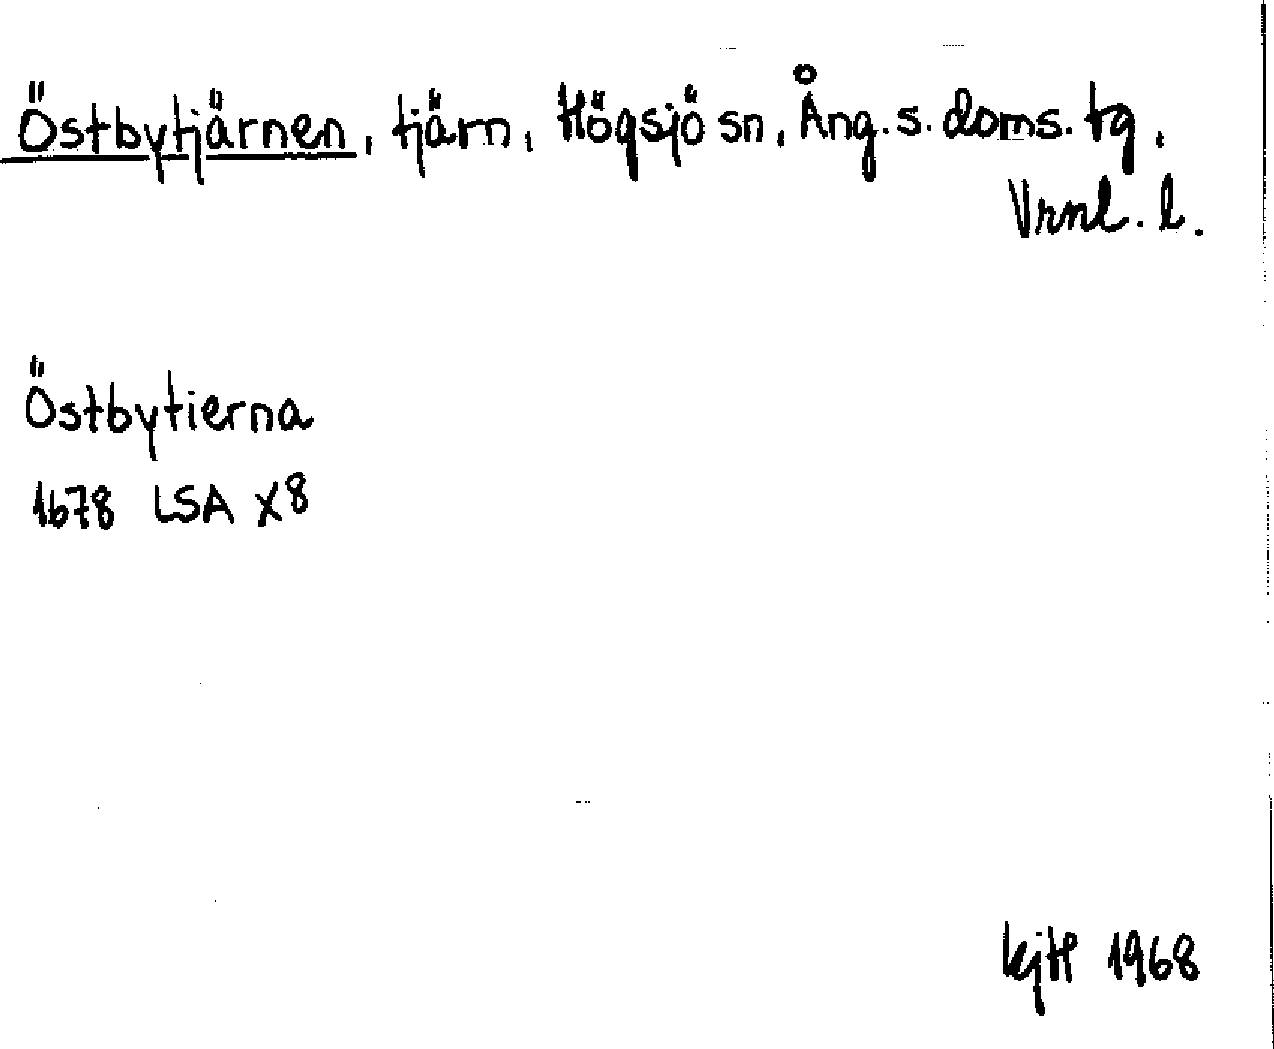 Östbytjärnen, tjärn, Högsjö sn, Ång. s. doms. tg,
Vrnl. l.
Östbytierna
1678 LSA X8
KjH 1968